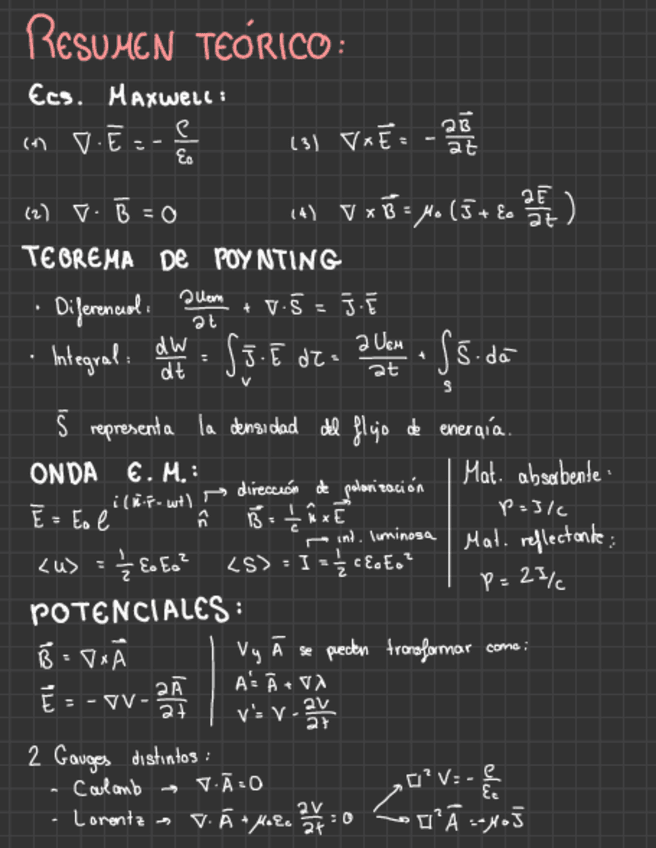 RESUMEN TEÓRICO:
Ecs. Maxwell:
(1) ∇·E̅ = - ρ/ε₀ (3) ∇×E̅ = - ∂B̅/∂t
(2) ∇· B̅ = 0 (4) ∇ × B̅ = μ₀ (J̅ + ε₀ ∂E̅/∂t)
TEOREMA DE POYNTING
· Diferencial: ∂Uem/∂t + ∇·S̅ = J̅·E̅
· Integral: dW/dt = ∫_V J̅·E̅ dτ = ∂U_EM/∂t + ∫_S S̅·da̅
S̅ representa la densidad del flujo de energía.
ONDA E.M.:
E̅ = E₀ e^{i(k̅·r̅-ωt)} n̂ → dirección de polarización B̅ = 1/c k̂×E̅
<u> = 1/2 ε₀E₀² <S> = I = 1/2 cε₀E₀² → int. luminosa
Mat. absorbente:
P = I/c
Mat. reflectante:
P = 2I/c
POTENCIALES:
B̅ = ∇×A̅
E̅ = -∇V - ∂A̅/∂t
V y A̅ se pueden transformar como:
A̅' = A̅ + ∇λ
V' = V - ∂V/∂t
2 Gauges distintos:
- Coulomb → ∇·A̅ = 0
- Lorentz → ∇·A̅ + μ₀ε₀ ∂V/∂t = 0
□²V = - ρ/ε₀
□²A̅ = -μ₀J̅